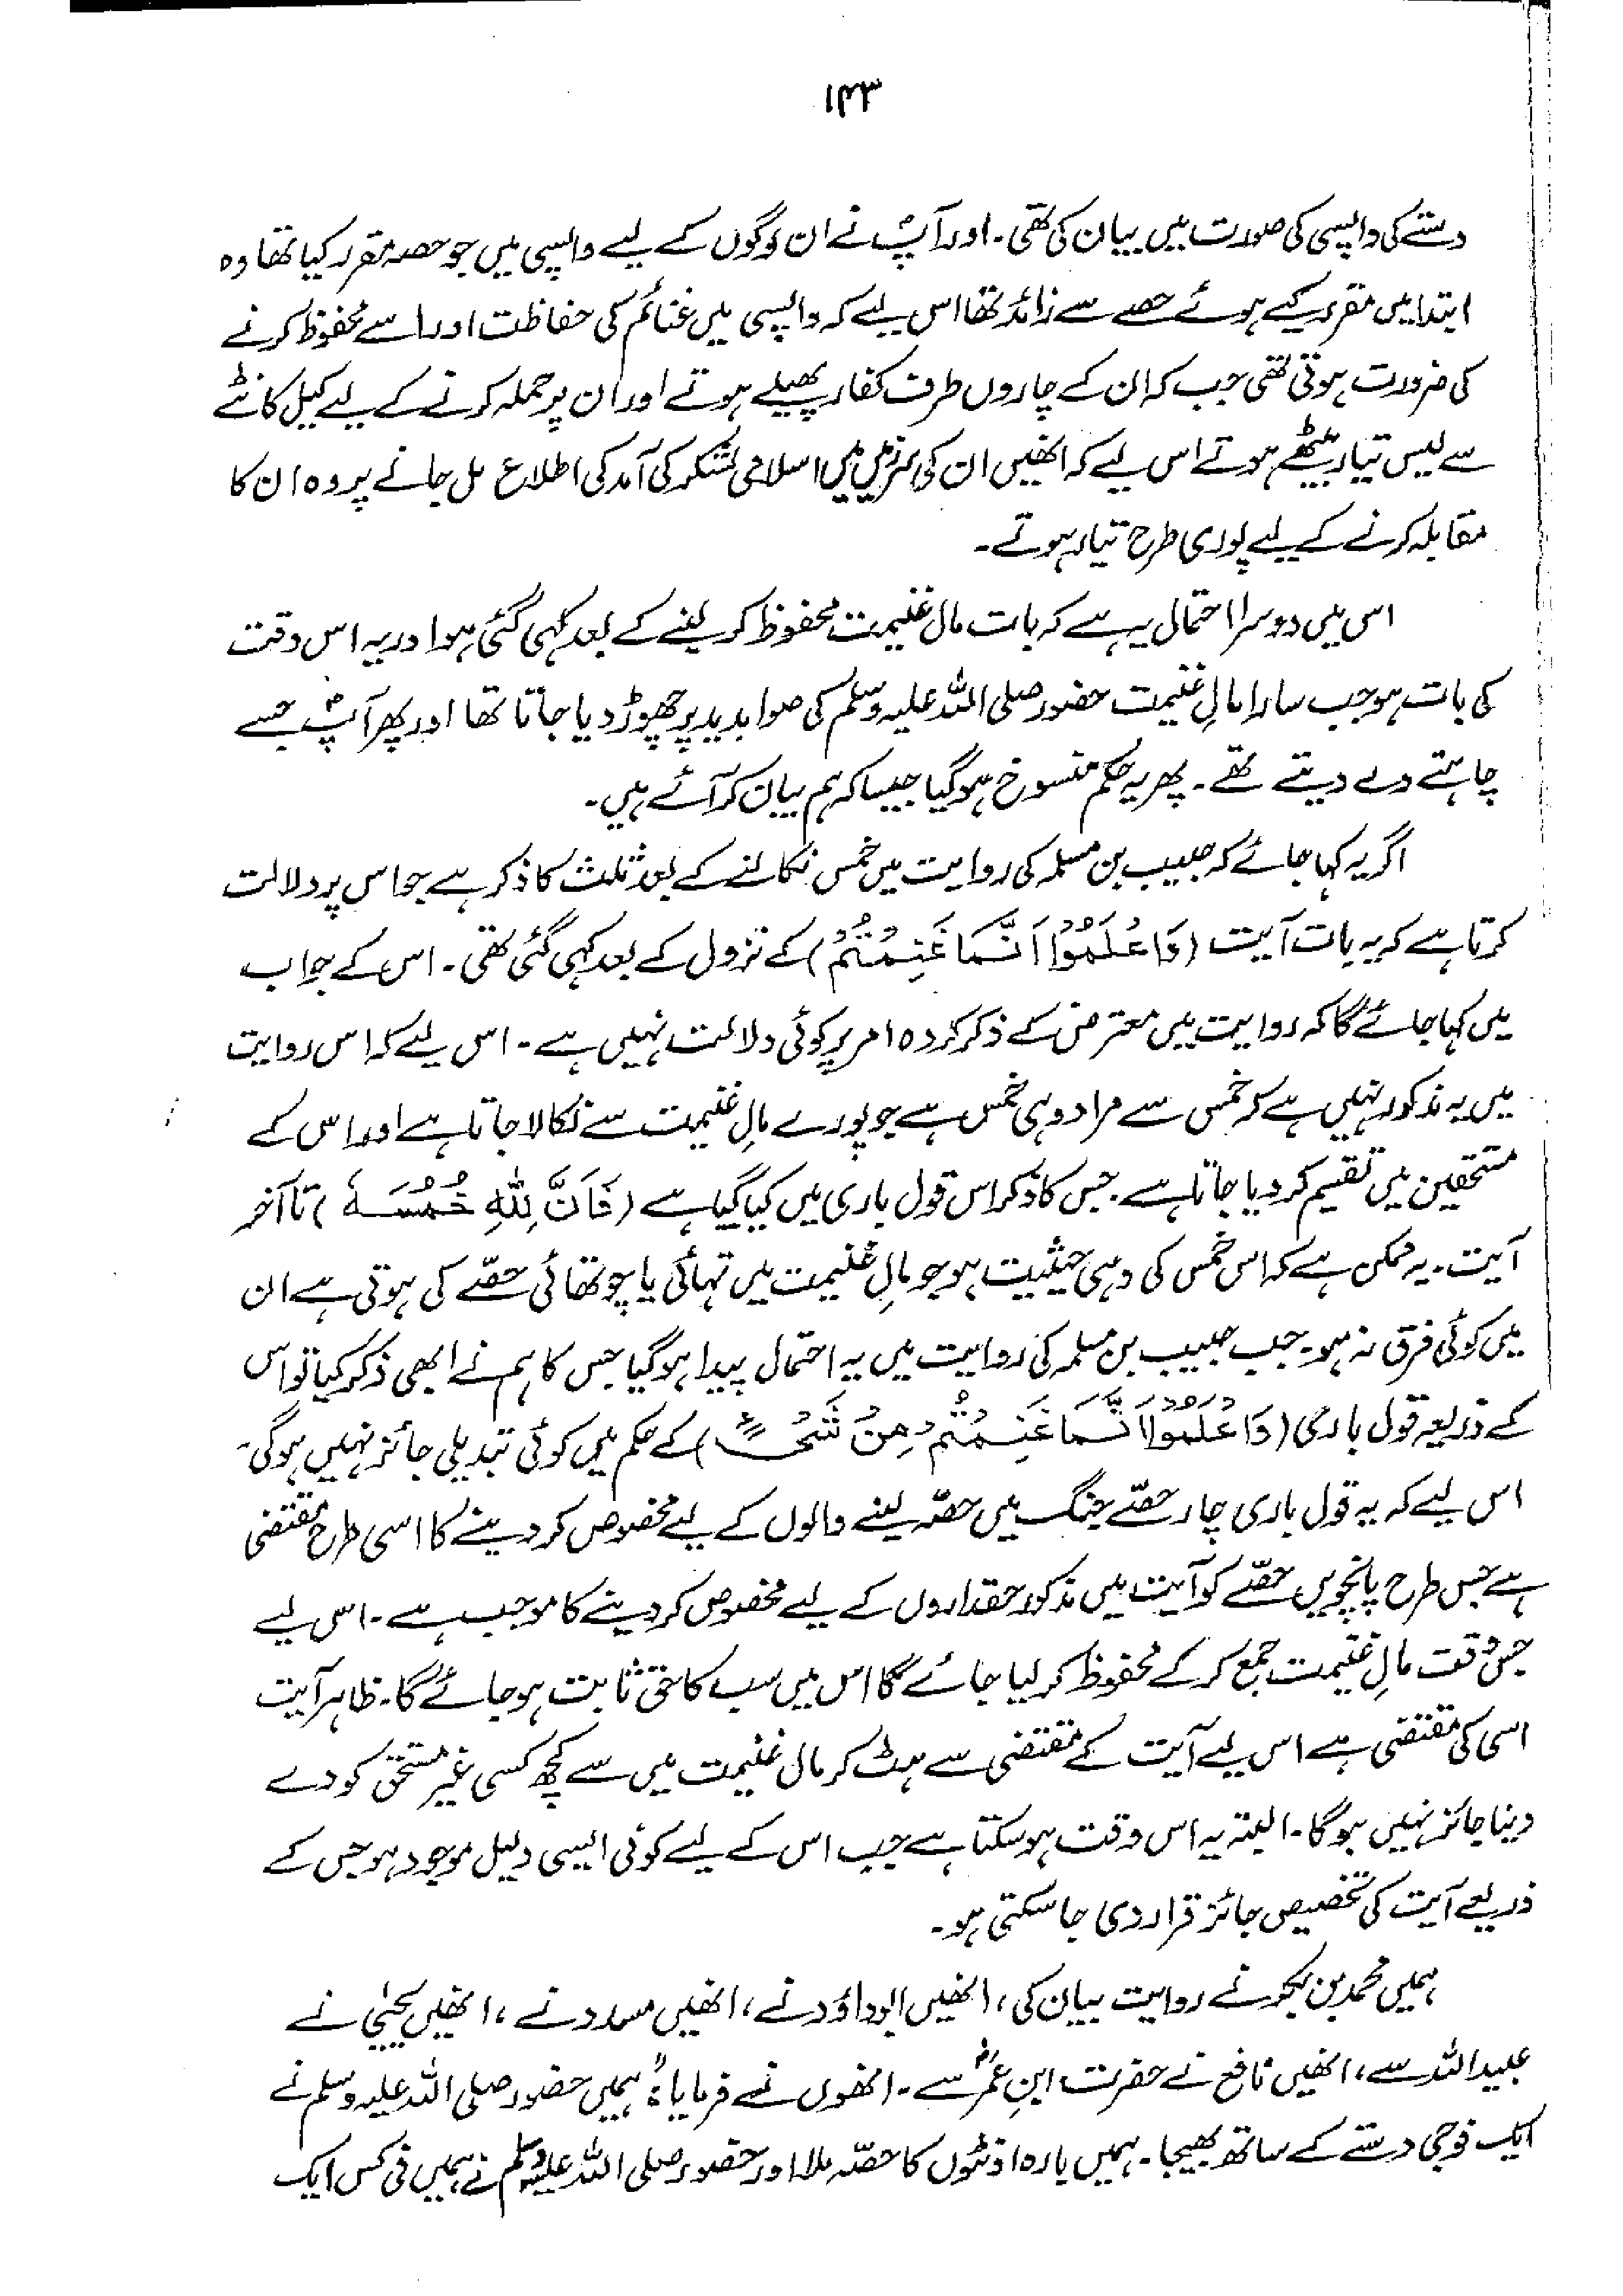 ۱۴۳
دستے کی واپسی کی صورت میں بیان کی تھی۔ اور آپؐ نے ان لوگوں کے لیے واپسی میں جو حصہ مقرر کیا تھا وہ
ابتدا میں مقرر کیے ہوئے حصے سے زائد تھا اس لیے کہ واپسی میں غنائم کی حفاظت اور اسے محفوظ کرنے
کی ضرورت ہوتی تھی جب کہ ان کے چاروں طرف کفار پھیلے ہوتے اور ان پر حملہ کرنے کے لیے کیل کانٹے
سے لیس تیار بیٹھے ہوتے اس لیے کہ انھیں ان کی سرزمین میں اسلامی لشکر کی آمد کی اطلاع مل جانے پر وہ ان کا
مقابلہ کرنے کے لیے پوری طرح تیار ہوتے۔
اس میں دوسرا احتمال یہ ہے کہ بات مال غنیمت محفوظ کر لینے کے بعد کہی گئی ہو اور یہ اس وقت
کی بات ہو جب سارا مالِ غنیمت حضور صلی اللہ علیہ وسلم کی صوابدید پر چھوڑ دیا جاتا تھا اور پھر آپؐ جسے
چاہتے دے دیتے تھے۔ پھر یہ حکم منسوخ ہو گیا جیسا کہ ہم بیان کر آئے ہیں۔
اگر یہ کہا جائے کہ حبیب بن مسلمہ کی روایت میں خمس نکالنے کے بعد ثلث کا ذکر ہے جو اس پر دلالت
کرتا ہے کہ یہ بات آیت (وَاعْلَمُوْا اَنَّمَا غَنِمْتُمْ) کے نزول کے بعد کہی گئی تھی۔ اس کے جواب
میں کہا جائے گا کہ روایت میں معترض کے ذکر کردہ امر پر کوئی دلالت نہیں ہے۔ اس لیے کہ اس روایت
میں یہ مذکور نہیں ہے کہ خمس سے مراد وہی خمس ہے جو پورے مالِ غنیمت سے نکالا جاتا ہے اور اس کے
مستحقین میں تقسیم کر دیا جاتا ہے۔ جس کا ذکر اس قول باری میں کیا گیا ہے (فَاَنَّ لِلّٰهِ خُمُسَهٗ) تا آخر
آیت۔ یہ ممکن ہے کہ اس خمس کی وہی حیثیت ہو جو مالِ غنیمت میں تہائی یا چوتھائی حصّے کی ہوتی ہے ان
میں کوئی فرق نہ ہو۔ جب حبیب بن مسلمہ کی روایت میں یہ احتمال پیدا ہو گیا جس کا ہم نے ابھی ذکر کیا تو اس
کے ذریعہ قول باری (وَاعْلَمُوْا اَنَّمَا غَنِمْتُمْ مِنْ شَىْءٍ) کے حکم میں کوئی تبدیلی جائز نہیں ہوگی۔
اس لیے کہ یہ قول باری چار حصّے جنگ میں حصّہ لینے والوں کے لیے مخصوص کر دینے کا اسی طرح مقتضی
ہے جس طرح پانچویں حصّے کو آیت میں مذکور حقداروں کے لیے مخصوص کر دینے کا موجب ہے۔ اس لیے
جس وقت مالِ غنیمت جمع کر کے محفوظ کر لیا جائے گا اس میں سب کا حق ثابت ہو جائے گا۔ ظاہر آیت
اسی کی مقتضی ہے اس لیے آیت کے مقتضی سے ہٹ کر مال غنیمت میں سے کچھ کسی غیر مستحق کو دے
دینا جائز نہیں ہوگا۔ البتہ یہ اس وقت ہو سکتا ہے جب اس کے لیے کوئی ایسی دلیل موجود ہو جس کے
ذریعے آیت کی تخصیص جائز قرار دی جا سکتی ہو۔
ہمیں محمد بن بکر نے روایت بیان کی، انھیں ابوداؤد نے، انھیں مسدد نے، انھیں یحییٰ نے
عبید اللہ سے، انھیں نافع نے حضرت ابنِ عمرؓ سے۔ انھوں نے فرمایا: "ہمیں حضور صلی اللہ علیہ وسلم نے
ایک فوجی دستے کے ساتھ بھیجا۔ ہمیں بارہ اونٹوں کا حصّہ ملا اور حضور صلی اللہ علیہ وسلم نے ہمیں فی کس ایک